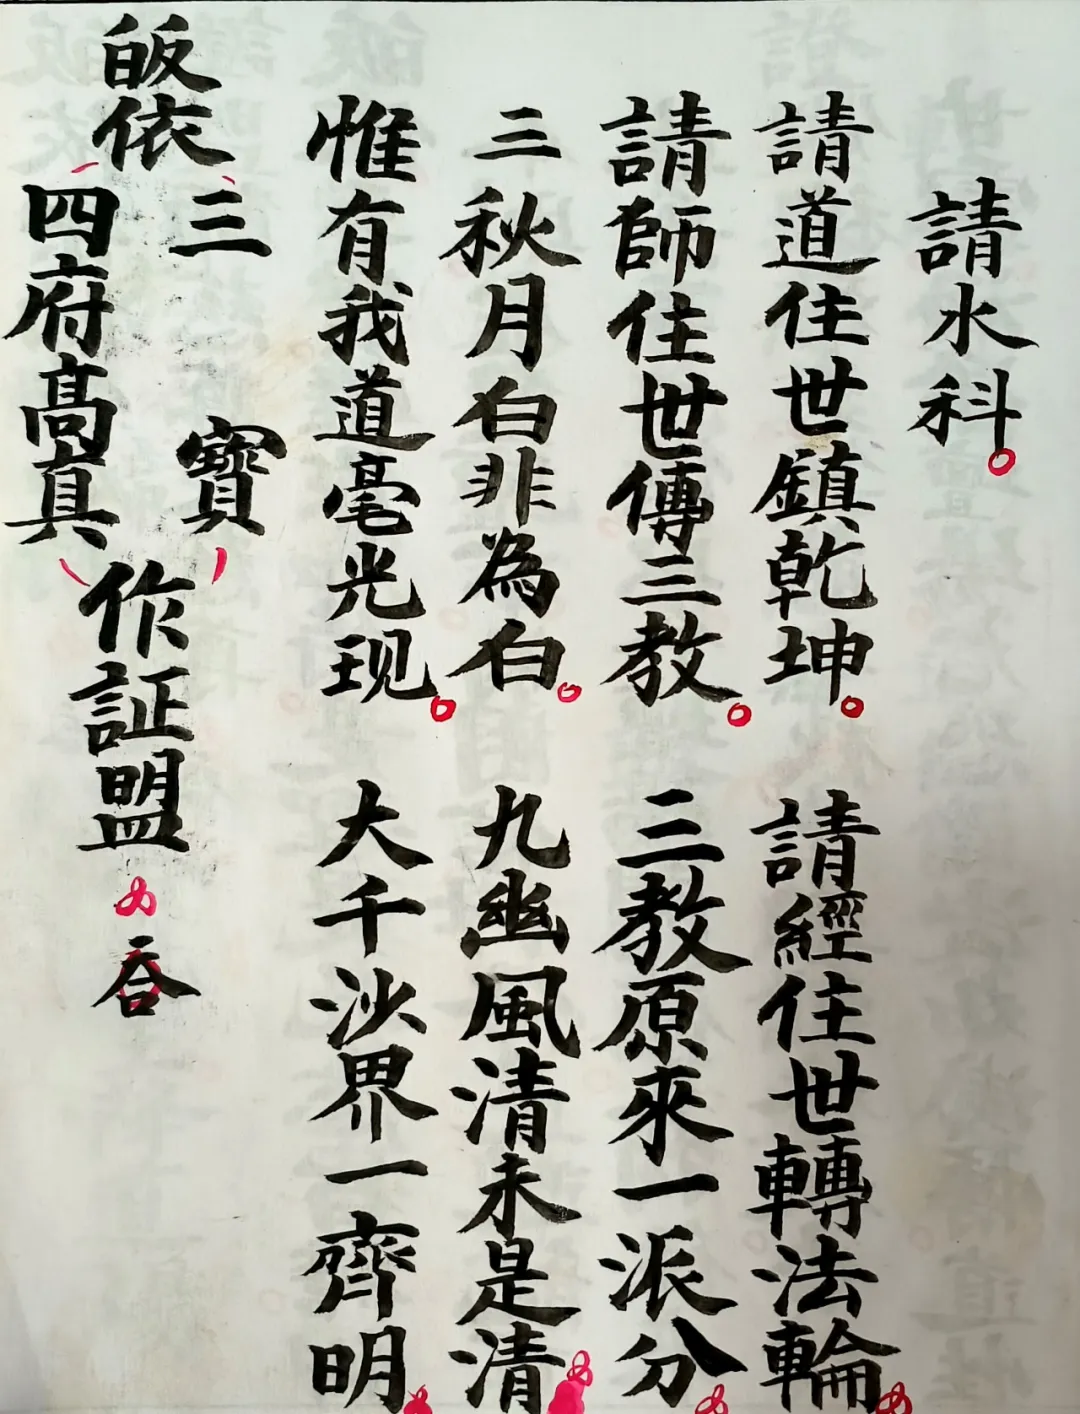 請水科
請道住世鎮乾坤 請經住世轉法輪
請師住世傳三教 三教原來一派分
三秋月白非為白 九幽風清未是清
惟有我道毫光现 大千沙界一齊明
皈依三寶
四府高真作証盟
吞